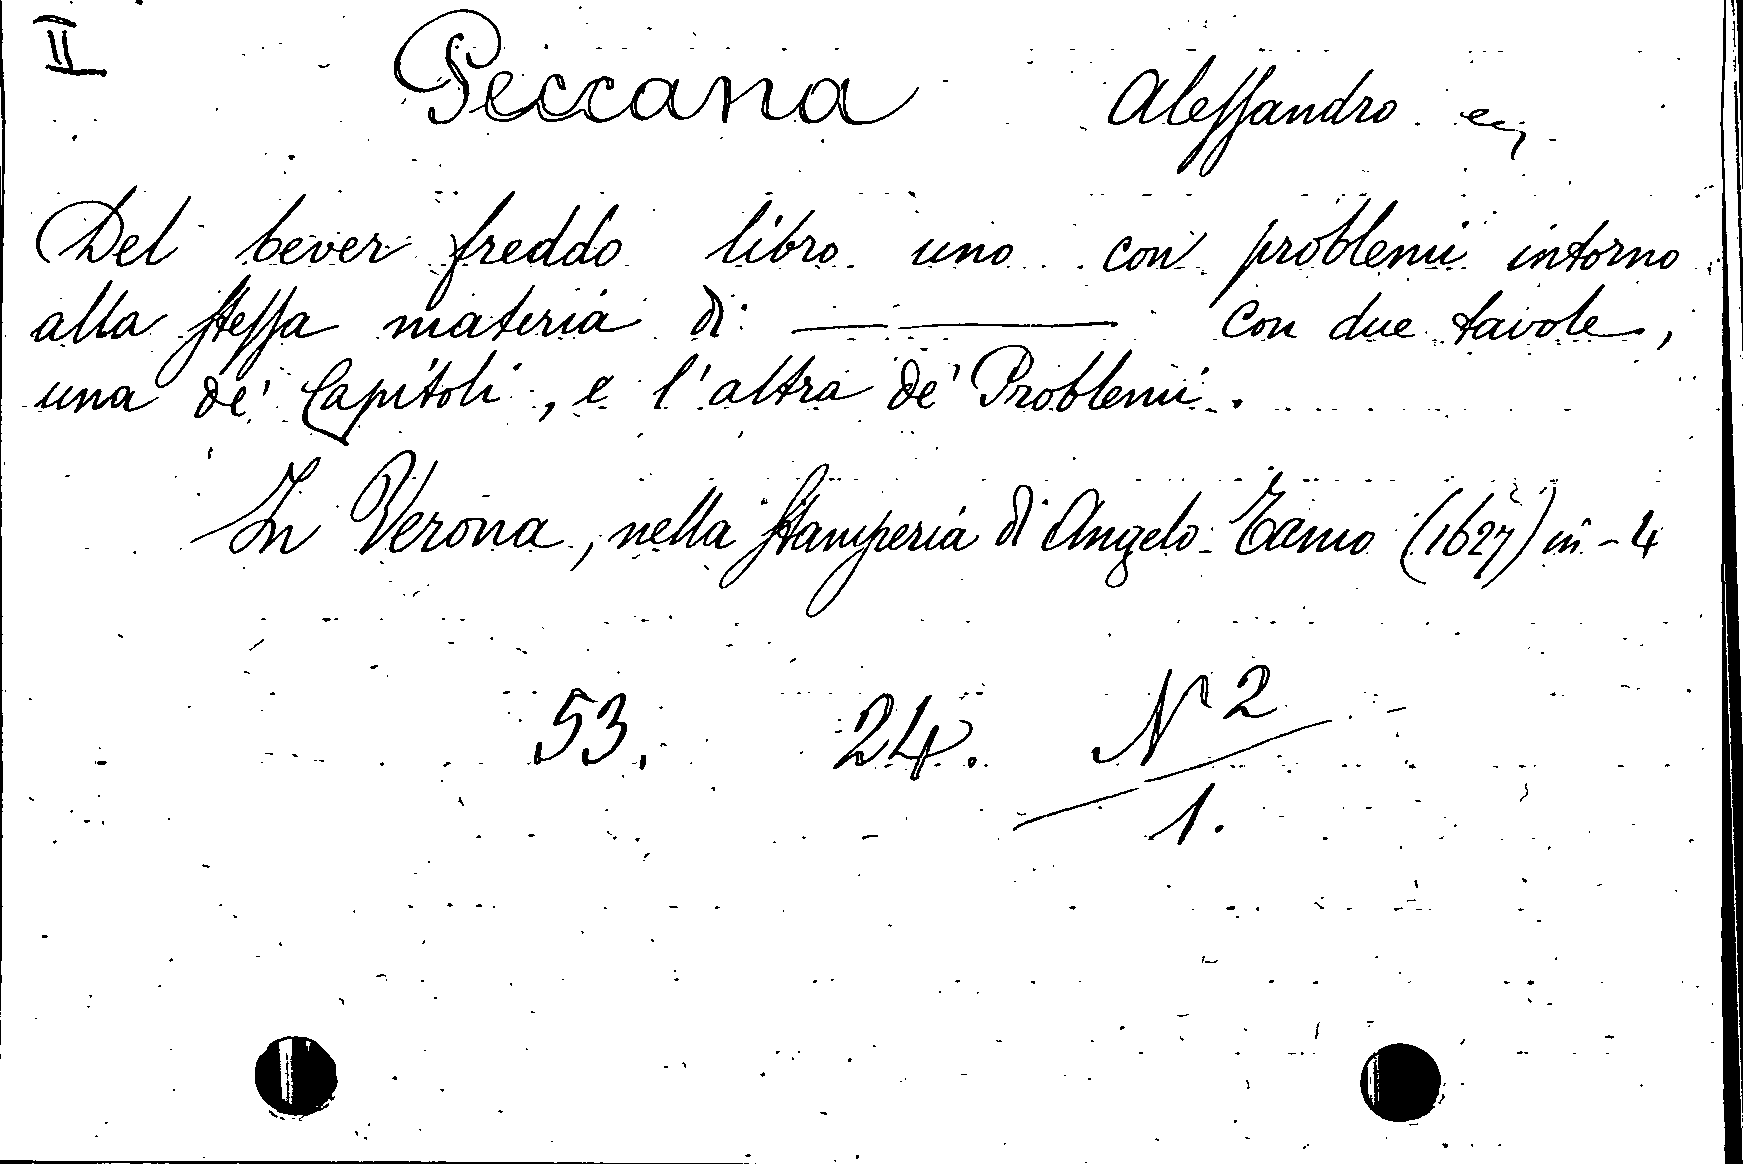 II Peccana Alessandro
Del bever freddo libro uno con problemi intorno
alla stessa materia di ——— con due tavole,
una de' Capitoli, e l'altra de' Problemi.
In Verona, nella stamperia di Angelo Tamo (1627) in-4
53. 24. N 2
1.